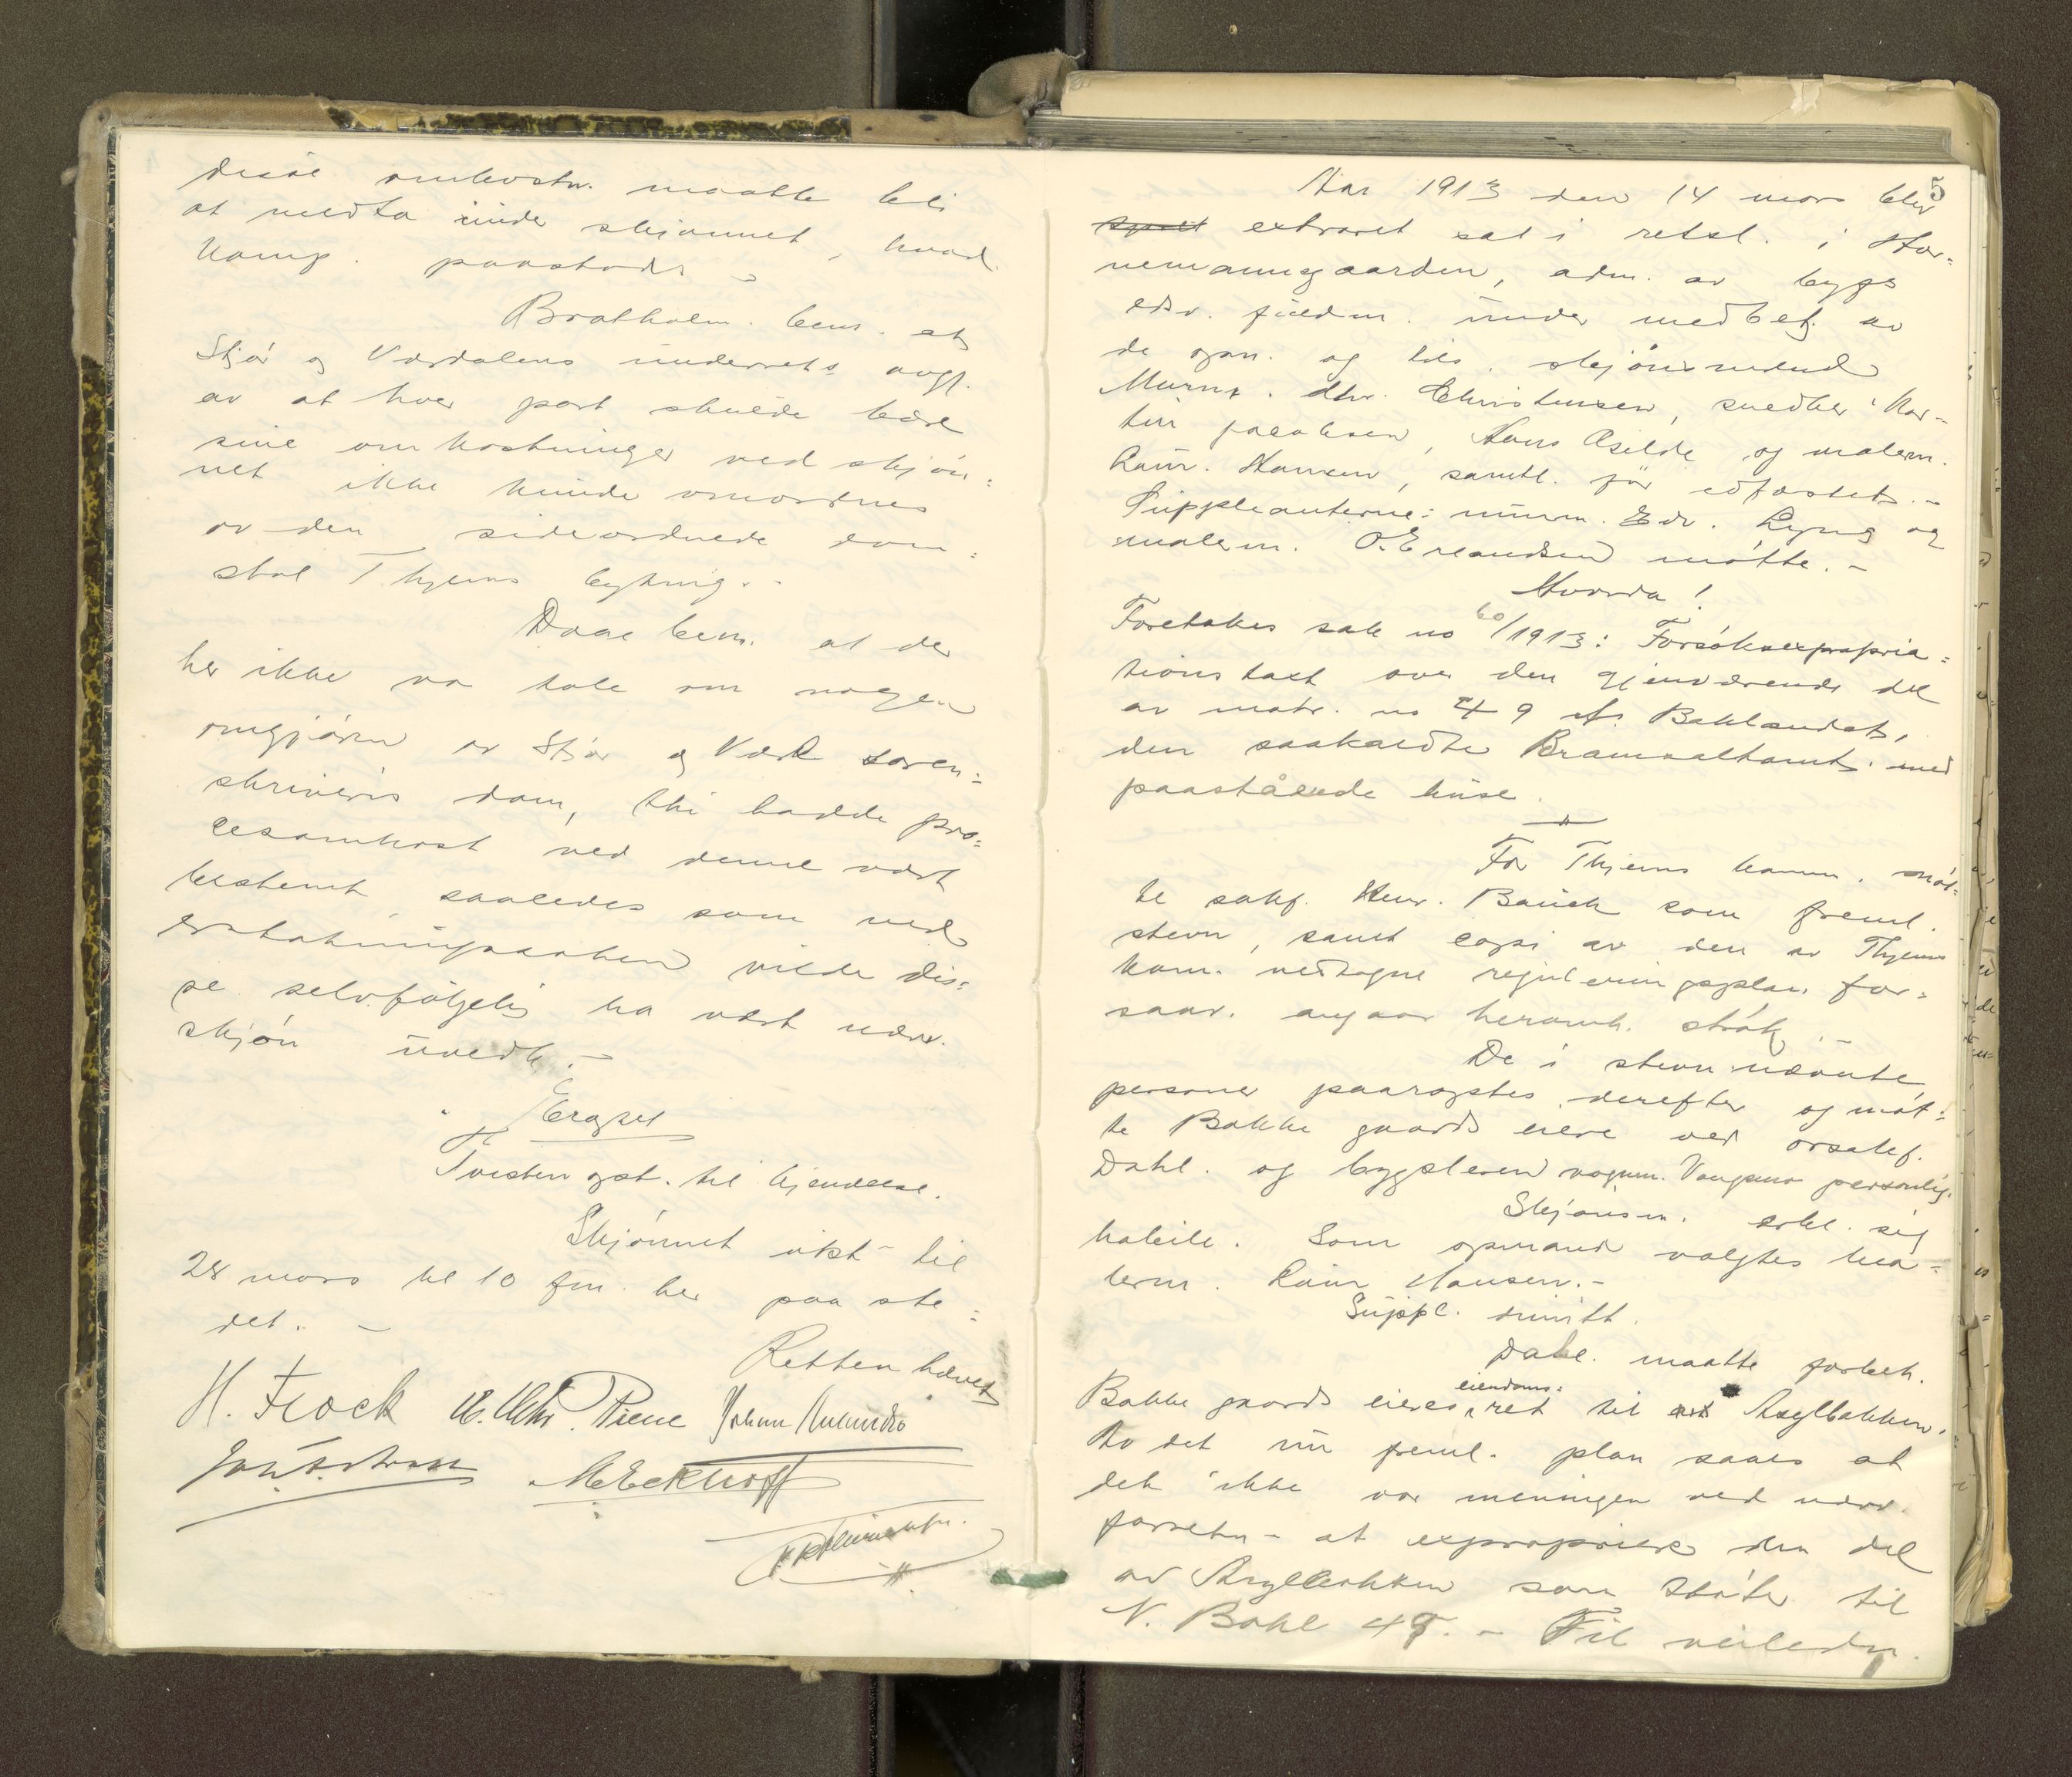 disse omkostn. maatte bli
at medta under skjønnet, hvad
komp. paastods
Bratholm. bem. at
Stjør og Værdalens underrets avgj.
av at hver part skulde bære
sine omkostninger ved skjøn=
net ikke kunde omordnes
av den sideordnede dom=
stol Thjems byting. -
Daae bem. at der
her ikke var tale om nogen
omgjøren av Stjør og Værd soren=
skriveris dom, thi hadde pro=
cesomkost ved denne vært
bestemt saaledes som ved
erstatningssaken vilde dis=
se selvfølgelig ha vært nærv.
skjøn uvedk. -
Tvisten opt. til kjendelse.
Skjønnet utst til
28 mars kl 10 fm. her paa ste=
det. -
Retten hævet
H. Flock Piene Johan
MEckhoff
5
Aar 1913 den 14 mars blev
extraret sat i retsl. i Hor=
nemannsgaarden, adm. av bygs
edsv. fuldm. under medbetj. av
de opn. og tils. skjønsmænd
Murm. Chr. Christensen, snedker Mar-
tin Jacobsen, Hans Asilde og malerm.
Laur. Hansen, samtl. før edfæstet. -
Suppleanterne: murm. Edv. Lyng og
malerm. O. Erlandsen møtte. -
Hvorda!
Foretokes sak no 60/1913: Forsøksexpropria=
tionstaxt over den gjenværende del
av matr. no 49 Baklandet,
den saakaldte Bramsaltomt. med
paastående huse.
For Thjems komm. møt=
te sakf. Henr. Bauck som freml.
stevn, samt copi av den av Thjems
kom. vedtagne reguleringsplan for=
saav. angaar heromh. strøk.
De i stevn nævnte
personer paaroptes derefter og møt=
te Bakke gaards eiere ved orsakf.
Dahl. og bygsleren vognm. Vongsnes personlig.
Skjønsm. erkl. sig
habile. Som opmand valgtes ma=
lerm. Laur Hansen. -
Suppl. dimitt.
Dahl. maatte forbeh.
Bakke gaards eieres eiendoms= ret til Asylbakken.
Av det nu freml. plan saaes at
det ikke var meningen ved nærv.
forretn - at expropriere den del
av Asylbakken som støter til
N. Bakl 47. - Til veiledn.